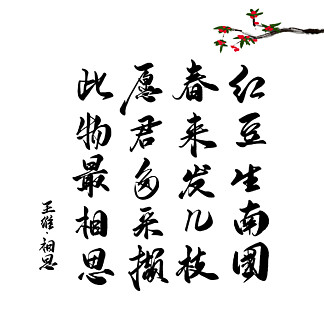 红豆生南国
春来发几枝
愿君多采撷
此物最相思
王维·相思